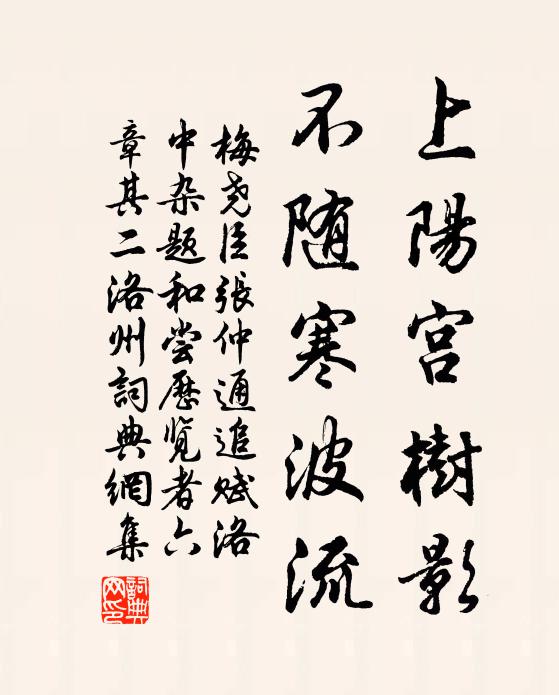 上陽宫樹影
不随寒波流
梅尧臣張仲通追赋洛
中杂题和尝歷览者六
章其二洛州詞典網集
詞典
网印